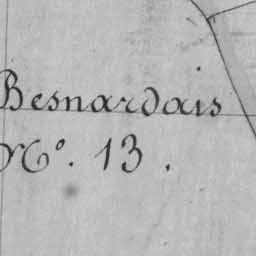 Besnardais
Nº. 13.